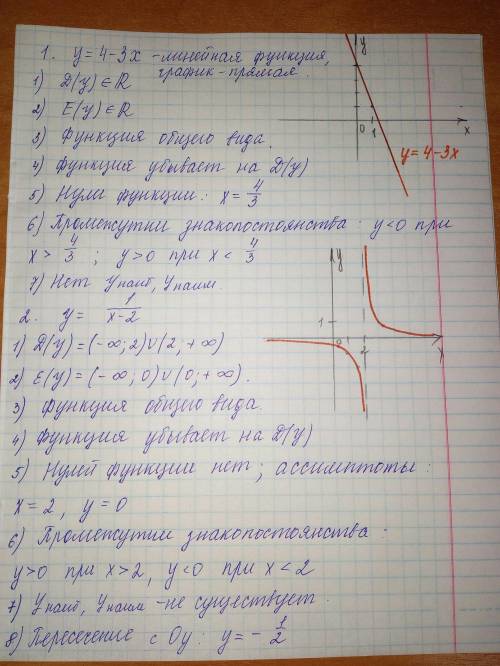 1. y = 4 - 3x - линейная функция,
график - прямая.
1) D(y) ∈ R
2) E(y) ∈ R
3) Функция общего вида.
4) Функция убывает на D(y)
5) Нули функции: x = 4/3
6) Промежутки знакопостоянства: y < 0 при
x > 4/3 ; y > 0 при x < 4/3
7) Нет yнаиб, yнаим
y
0 1 x
y = 4 - 3x
2. y = 1/(x-2)
1) D(y) = (-∞; 2) ∪ (2, +∞)
2) E(y) = (-∞; 0) ∪ (0; +∞).
3) Функция общего вида.
4) Функция убывает на D(y)
5) Нулей функции нет; ассимптоты:
x = 2, y = 0
6) Промежутки знакопостоянства:
y > 0 при x > 2, y < 0 при x < 2
7) yнаиб, yнаим - не существует.
8) Пересечение с Oy: y = - 1/2
y
1
0 2 x